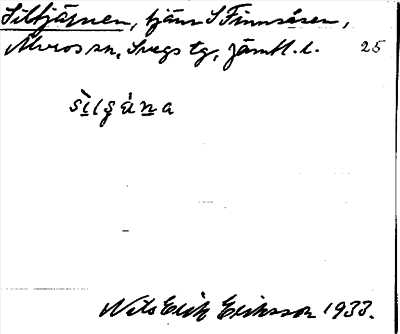 Siltjärnen, tjärn S Finnsåsen,
Älvros sn, Svegs tg, Jämtl. l. 25
sìlgä́na
Nils Erik Eriksson 1933.